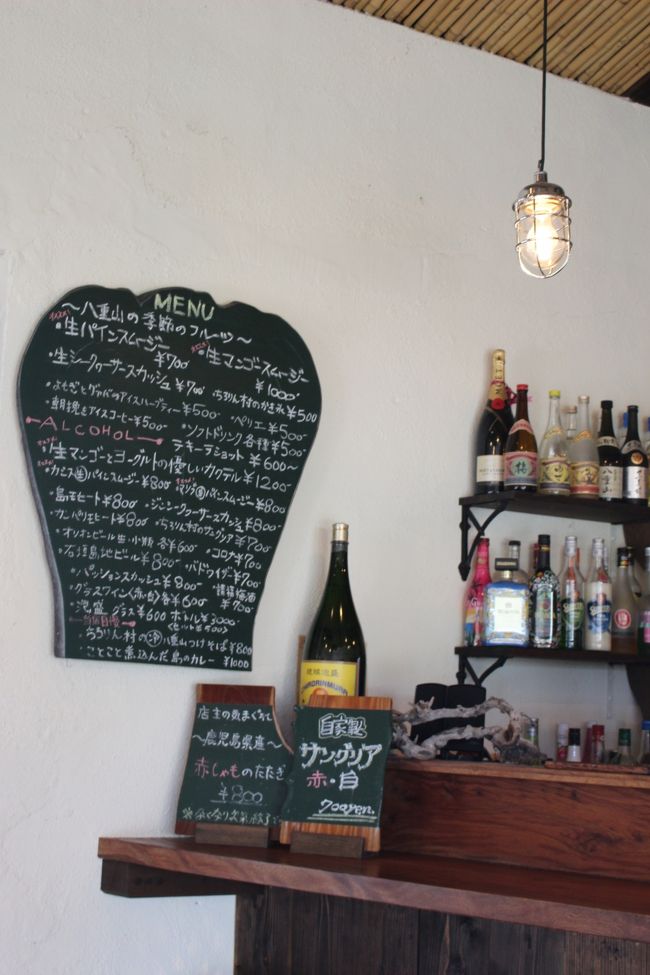 MENU
～八重山の季節のフルーツ～
オススメ!
・生パインスムージー
¥700
オススメ!
・生マンゴースムージー
¥1000
・生シークヮーサースカッシュ ¥700
・ちろりん村のかき氷 ¥500
・よもぎとグァバのアイスハーブティー ¥500
・ペリエ ¥500
・朝挽きアイスコーヒー ¥500
・ソフトドリンク各種 ¥500
ALCOHOL
・テキーラショット ¥600～
オススメ!
・生マンゴーとヨーグルトの優しいカクテル ¥1200
・カシス生パインスムージー ¥800
・マリブ生パインスムージー ¥800
・島モヒート ¥800
・ジンシークヮーサースカッシュ ¥800
・カンパリモヒート ¥800
・ちろりん村のサングリア ¥700
・オリオンビール 生・小瓶 各¥600
・コロナ ¥700
・石垣島地ビール ¥800
・バドワイザー ¥700
・パッションスカッシュ ¥800
・請福梅酒 ¥700
・グラスワイン(赤・白)各¥600
・泡盛 グラス ¥600 ボトル ¥3000
(セット ¥500)
当店自慢
・ちろりん村の冷八重山つけそば ¥800
・ことこと煮込んだ島のカレー ¥1000
店主の気まぐれで
～鹿児島県産～
赤しゃものたたき
¥800
自家製
サングリア
赤・白
700yen.
琉球泡盛
梅
八重山